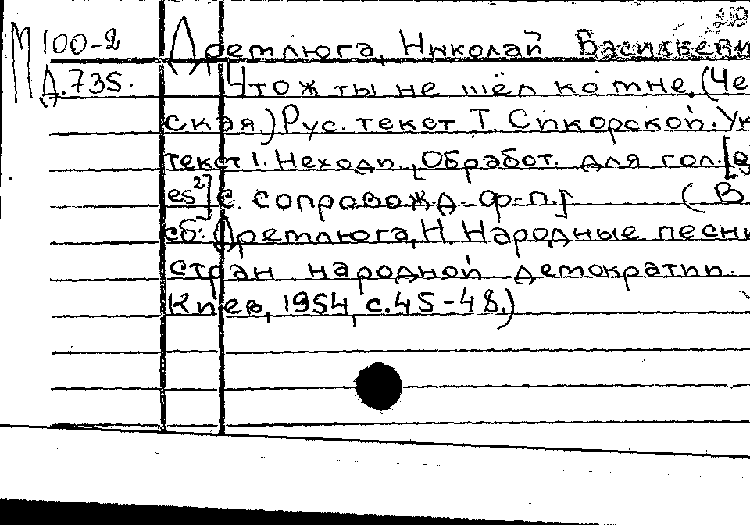 М 100-2 Дремлюга, Николай Васильеви
Д.735. Что ж ты не шёл ко мне. (Че
ская.) Рус. текст Т. Сикорской. Ук
текст І. Неходи. [Обработ. для гол. [
es²] с. сопровожд. ф-п.] (В
сб: Дремлюга, Н. Народные песни
стран народной демократии.
Киев, 1954, с. 45-48.)